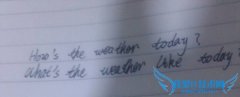 How's the weather today?
What's the weather like today?